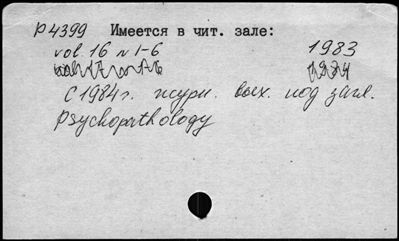 P4399 Имеется в чит. зале:
vol. 16 N 1-6 1983
С 1984г. журн. вых. под загл.
Psychopathology